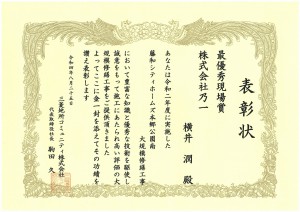 表彰状
最優秀現場賞
株式会社乃一
横井 潤 殿
あなたは令和二年度に実施した
藤和シティホームズ本郷公園南
大規模修繕工事
において豊富な知識と優秀な技術を駆使し
誠意をもって施工にあたられ高い評価の大
規模修繕工事をご提供頂きました
よってここに金一封を添えてその功績を
讃え表彰します
令和四年八月二十五日
三菱地所コミュニティ株式会社
代表取締役社長 駒田 久